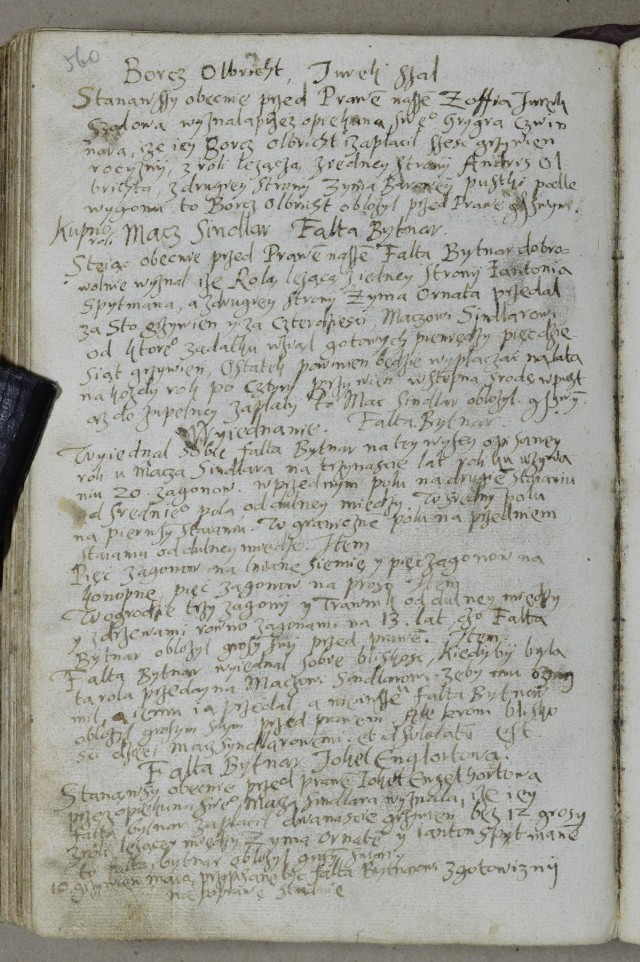 560
Borcz Olbricht, Jurek szal
Stanawszy obecnie przed Prawē nasze Zoffia Jurek
Szalowa wyznala przez opiekuna swe° Grygra Czwin
nara, ize iey Borcz Olbricht zaplacil szesc grziwien
rocznÿ, z roli lezącza, z iedney Strony Andrys Ol
brichta, z drugiey Strony Zyma pustki podle
wygonu to Borcz Olbricht oblozyl przed Prawē
Kupno roli Macz Sindlar Falta Bytnar.
Stojąc obecnie przed Prawē nasze Falta Bytnar dobro-
wolnie wyznal isze Rolą lezącą z iedney Strony Jantonia
Spytmana, a z drugiey Strony Zyma Ornata przedal
za Sto grziwien y za Czterdziesci, Maczowi Sindlarowi
od ktore° zadatku wziąl gotowych pieniedzy pięcdzie
siąt grziwien, Ostatek powinien bedzie wyplaczac na lata
na kozdy rok po Cztyry grziwien w Stępną Srode w post
az do zupelney zaplaty to Mac Sindlar oblozyl
Wyiednanie. Falta Bytnar.
Wyiednal Sobie Falta Bytnar na tey wyszey opisaney
roli u Macza Sindlara na trzynascie lat roli ku uzywa
niu 20 zagonow. w przednym polu na drugie Staianiu
od Srednie° pola od dulney miedzy. W Srednÿ polu
na pierwszÿ Staianiu. W graniczne polu na przednim
Staianiu od dulney miedze. Item
Pięc zagonow na lniane Siemię y pięc zagonow na
konopne, pięc zagonow na proso Item
W ogrodzie trzy zagony y Trawnik od dulney miedzy
y zdrzewami rowno zagonami na 13. lat, Falta
Bytnar oblozyl groszÿ przed prawē. Item
Falta Bytnar wyiednal sobie bliskosc, Kiedyby była
ta rola przedayna Maczowi Sindlarowi zeby mu
iemu ią przedal, a Falta Bytnar
oblozyl groszym przed prawem, blisko
sci dzieci Macz Syndlarowemi et absolutū est.
Falta Bytnar Johel Englortowa.
Stanąwszy obecnie przed prawē Johel Engelhortowa
przez opiekuna Swe° Macza Sindlara wyznala, ize iey
Falta bytnar zaplacil dwanascie grziwien bez 12 groszy
z roli lezącey miedzy Zyma Ornatē y Janton Spytmanē
to Falta bytnar oblozyl
10 grziwien maią przepisane byc Falta Bytnarowi z gotowizny
na poprawe studnie